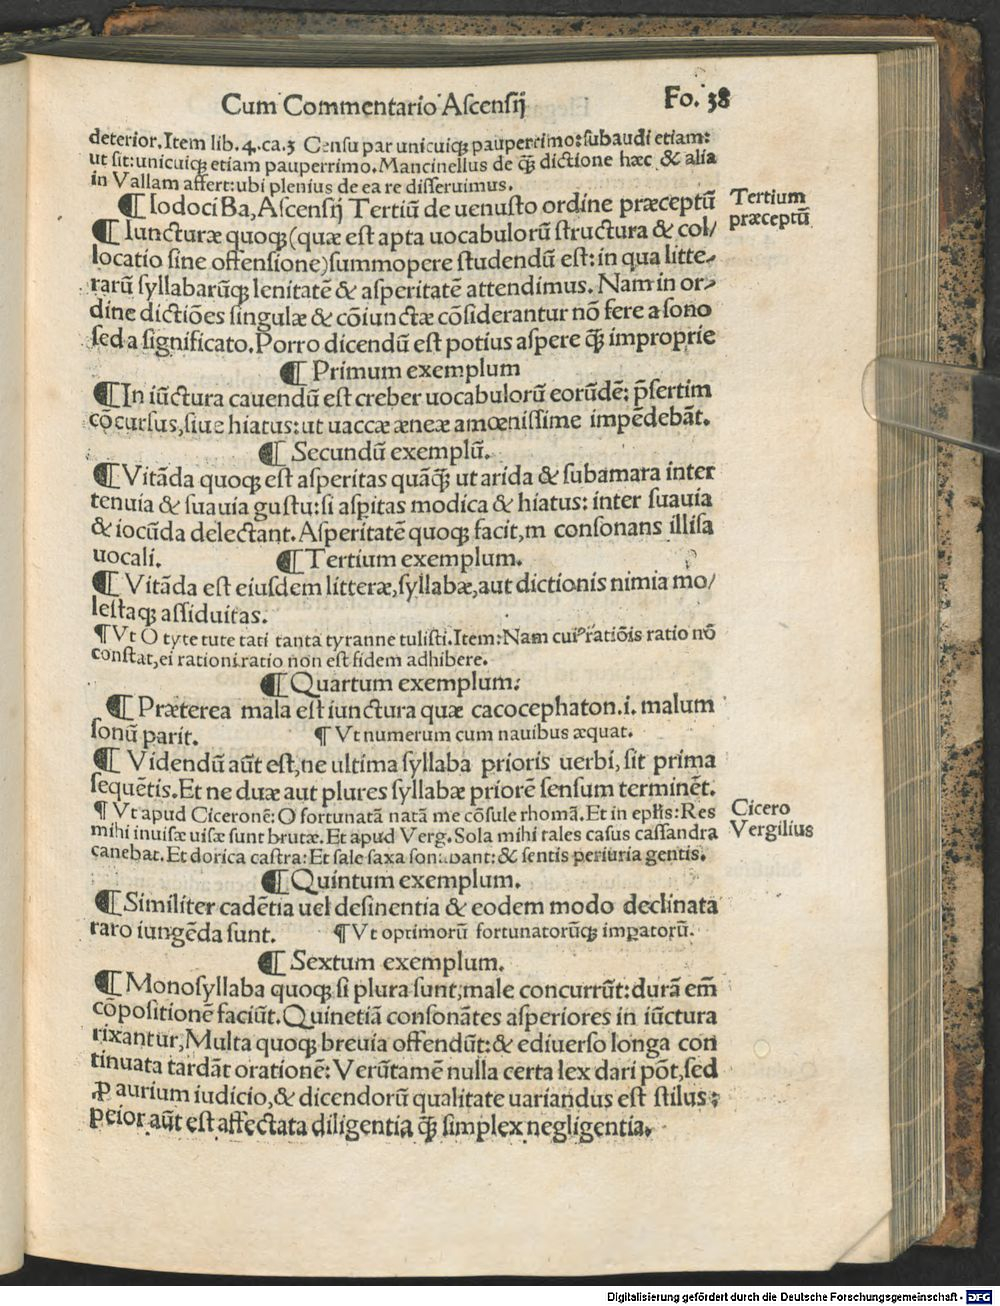 Cum Commentario Ascensij Fo. 38
deterior. Item lib. 4. ca. 3 Censu par unicuiqꝫ pauperrimo: subaudi etiam:
ut sit: unicuiqꝫ etiam pauperrimo. Mancinellus de qꝫ̃ dictione hæc & alia
in Vallam affert: ubi plenius de ea re disseruimus.
¶ Iodoci Ba, Ascensij Tertiũ de uenusto ordine præceptũ
Tertium
præceptũ
¶ Iuncturæ quoqꝫ (quæ est apta uocabulorũ structura & col/
locatio sine offensione) summopere studendũ est: in qua litte-
rarũ syllabarũqꝫ lenitatẽ & asperitatẽ attendimus. Nam in or-
dine dictiões singulæ & cõiunctæ cõsiderantur nõ fere a sono
sed a significato. Porro dicendũ est potius aspere qꝫ̃ improprie
¶ Primum exemplum
¶ In iũctura cauendũ est creber uocabulorũ eorũdẽ: p̃sertim
cõcursus, siue hiatus: ut uaccæ æneæ amœnissime impẽdebãt.
¶ Secundũ exemplũ.
¶ Vitãda quoqꝫ est asperitas quãqꝫ̃ ut arida & subamara inter
tenuia & suauia gustu: si asꝑitas modica & hiatus: inter suauia
& iocũda delectant. Asperitatẽ quoqꝫ facit, m consonans illisa
uocali. ¶ Tertium exemplum.
¶ Vitãda est eiusdem litteræ, syllabæ, aut dictionis nimia mo/
lestaqꝫ assiduitas.
¶ Vt O tyte tute tati tanta tyranne tulisti. Item: Nam cuiꝰ ratiõis ratio nõ
constat, ei rationi ratio non est fidem adhibere.
¶ Quartum exemplum:
¶ Præterea mala est iunctura quæ cacocephaton .i. malum
sonũ parit. ¶ Vt numerum cum nauibus æquat.
¶ Videndũ aũt est, ne ultima syllaba prioris uerbi, sit prima
sequẽtis. Et ne duæ aut plures syllabæ priorẽ sensum terminẽt.
¶ Vt apud Ciceronẽ: O fortunatã natã me cõsule rhomã. Et in ep̃lis: Res
Cicero
mihi inuisæ uisæ sunt brutæ. Et apud Verg. Sola mihi tales casus cassandra
Vergilius
canebat. Et dorica castra: Et sale saxa sonabant: & sentis periuria gentis.
¶ Quintum exemplum.
¶ Similiter cadẽtia uel desinentia & eodem modo declinata
raro iungẽda sunt. ¶ Vt optimorũ fortunatorũqꝫ imꝑatorũ.
¶ Sextum exemplum.
¶ Monosyllaba quoqꝫ si plura sunt, male concurrũt: durã em̃
cõpositionẽ faciũt. Quinetiã consonãtes asperiores in iũctura
rixantur, Multa quoqꝫ breuia offendũt: & ediuerso longa con
tinuata tardãt orationẽ: Verũtamẽ nulla certa lex dari põt, sed
ꝓ aurium iudicio, & dicendorũ qualitate uariandus est stilus:
peior aũt est affectata diligentia qꝫ̃ simplex negligentia.
Digitalisierung gefördert durch die Deutsche Forschungsgemeinschaft - DFG